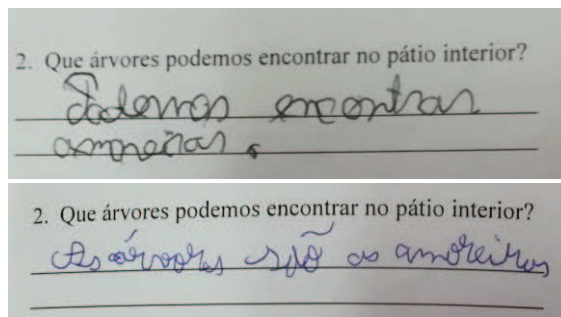 2. Que árvores podemos encontrar no pátio interior?
Podemos encontrar
amoreiras.
2. Que árvores podemos encontrar no pátio interior?
As árvores são as amoreiras